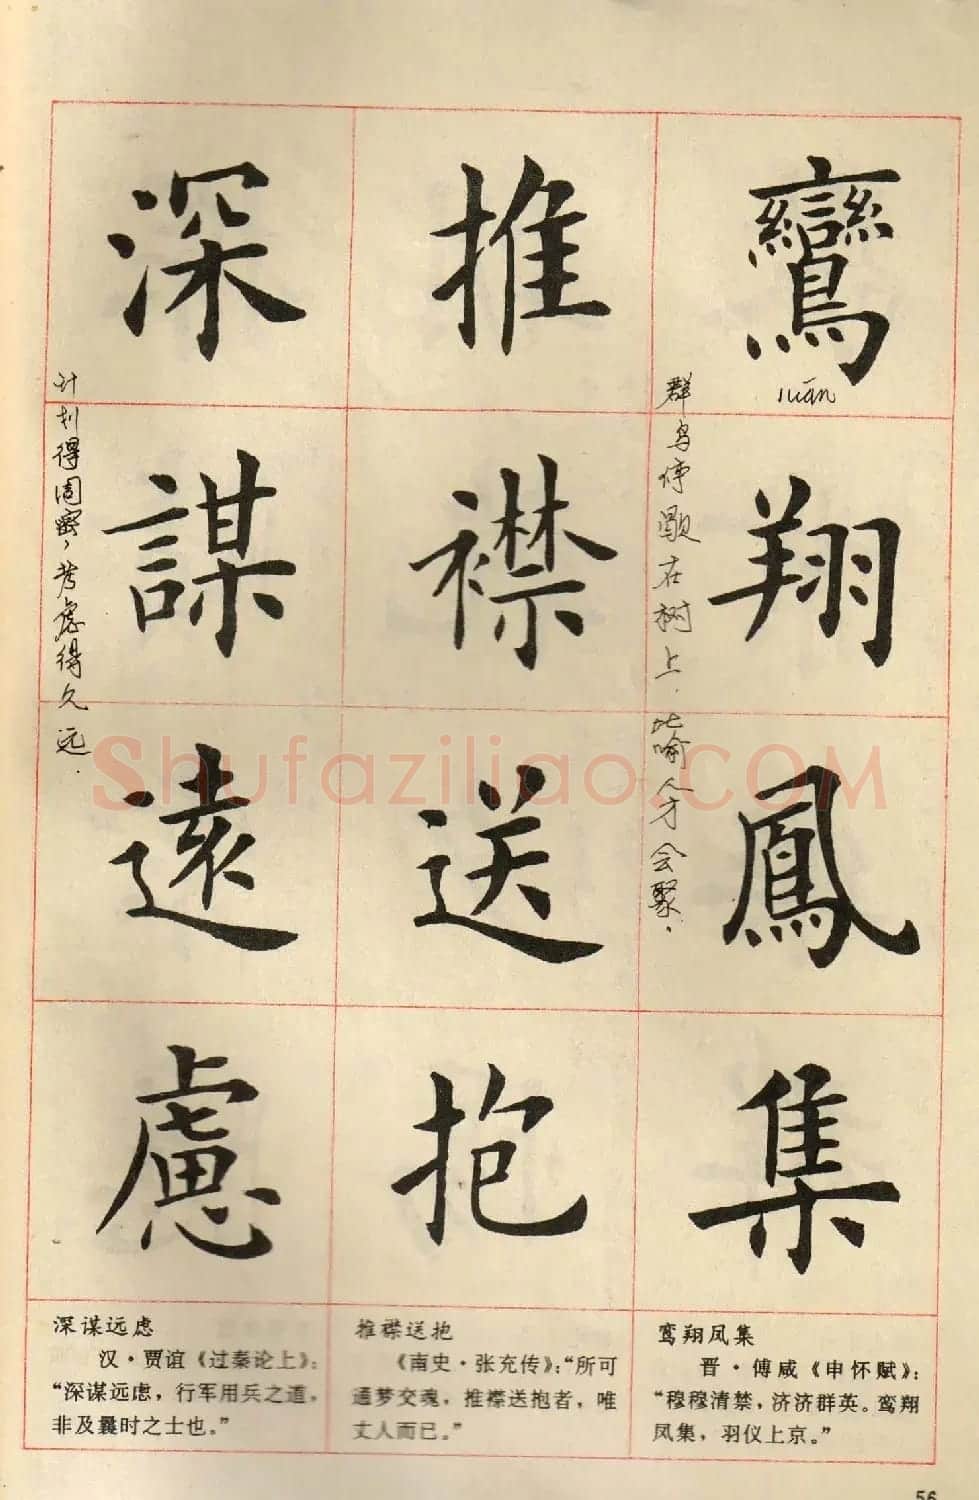 鸞翔鳳集
luán
群鸟停歇在树上，比喻人才会聚．
推襟送抱
深謀遠慮
计划得周密，考虑得久远．
Shufaziliao.COM
鸾翔凤集
晋·傅咸《申怀赋》：
“穆穆清禁，济济群英。鸾翔
凤集，羽仪上京。”
推襟送抱
《南史·张充传》：“所可
通梦交魂，推襟送抱者，唯
丈人而已。”
深谋远虑
汉·贾谊《过秦论上》：
“深谋远虑，行军用兵之道，
非及曩时之士也。”
56